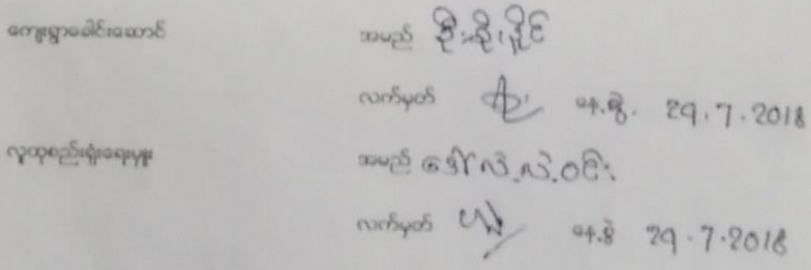 ကျေးရွာခေါင်းဆောင် အမည် စိုးစိုးနိုင်
လက်မှတ် နေ့.စွဲ. 29.7.2018
လူထုစည်းရုံးရေးမှူး အမည် ဒေါ်လဲ့လဲ့ဝင်း
လက်မှတ် နေ့.စွဲ 29.7.2018